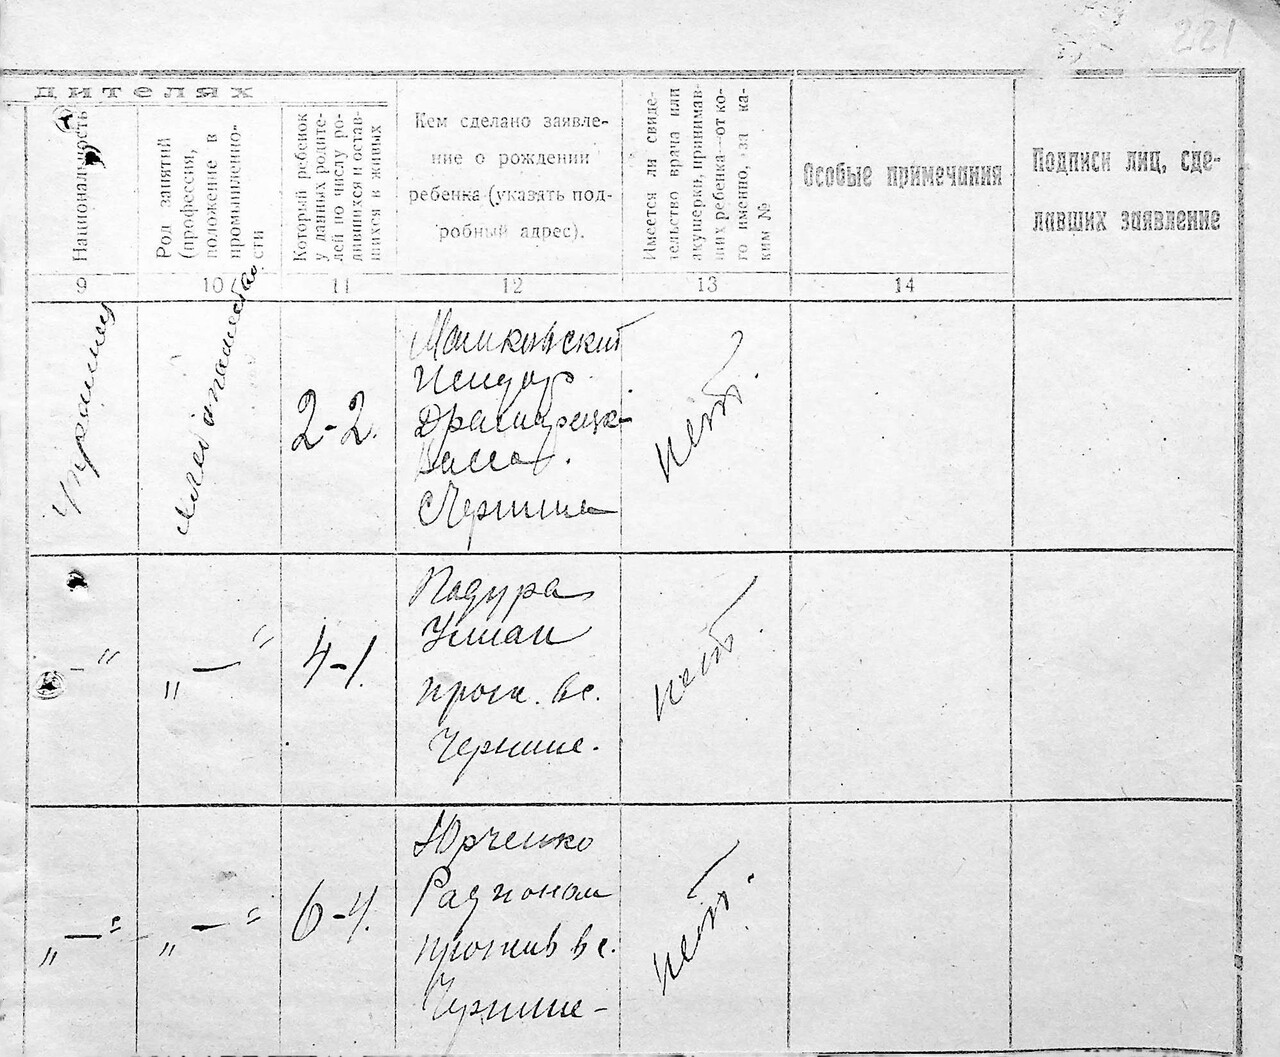 221
дителях
Национальность
Род занятий
(профессия,
положение в
промышленно-
сти
Который ребенок
у данных родите-
лей по числу ро-
дившихся и остав-
шихся в живых
Кем сделано заявле-
ние о рождении
ребенка (указать под-
робный адрес).
Имеется ли свиде-
тельство врача или
акушерки, принимав-
ших ребенка—от ко-
го именно, за ка-
ким №
Особые примечания
Подписи лиц, сде-
лавших заявление
9
10
11
12
13
14
2-2.
нет.
— "
„ — "
4-1.
Падура
прож. в с.
Чернине.
нет.
„ — "
„ — "
6-4.
Юрченко
Радион
прожив в с.
Чернине-
нет.